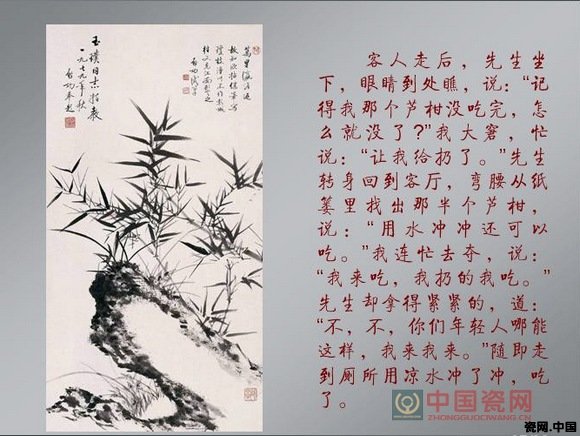 客人走后，先生坐
下，眼睛到处瞧，说：“记
得我那个芦柑没吃完，怎
么就没了？”我大窘，忙
说：“让我给扔了。”先生
转身回到客厅，弯腰从纸
篓里找出那半个芦柑，
说：“用水冲冲还可以
吃。”我连忙去夺，说：
“我来吃，我扔的我吃。”
先生却拿得紧紧的，道：
“不，不，你们年轻人哪能
这样，我来我来。”随即走
到厕所用凉水冲了冲，吃
了。
一九七九年秋
启功
中国瓷网
ZHONGGUOCIWANG.CN
瓷网.中国